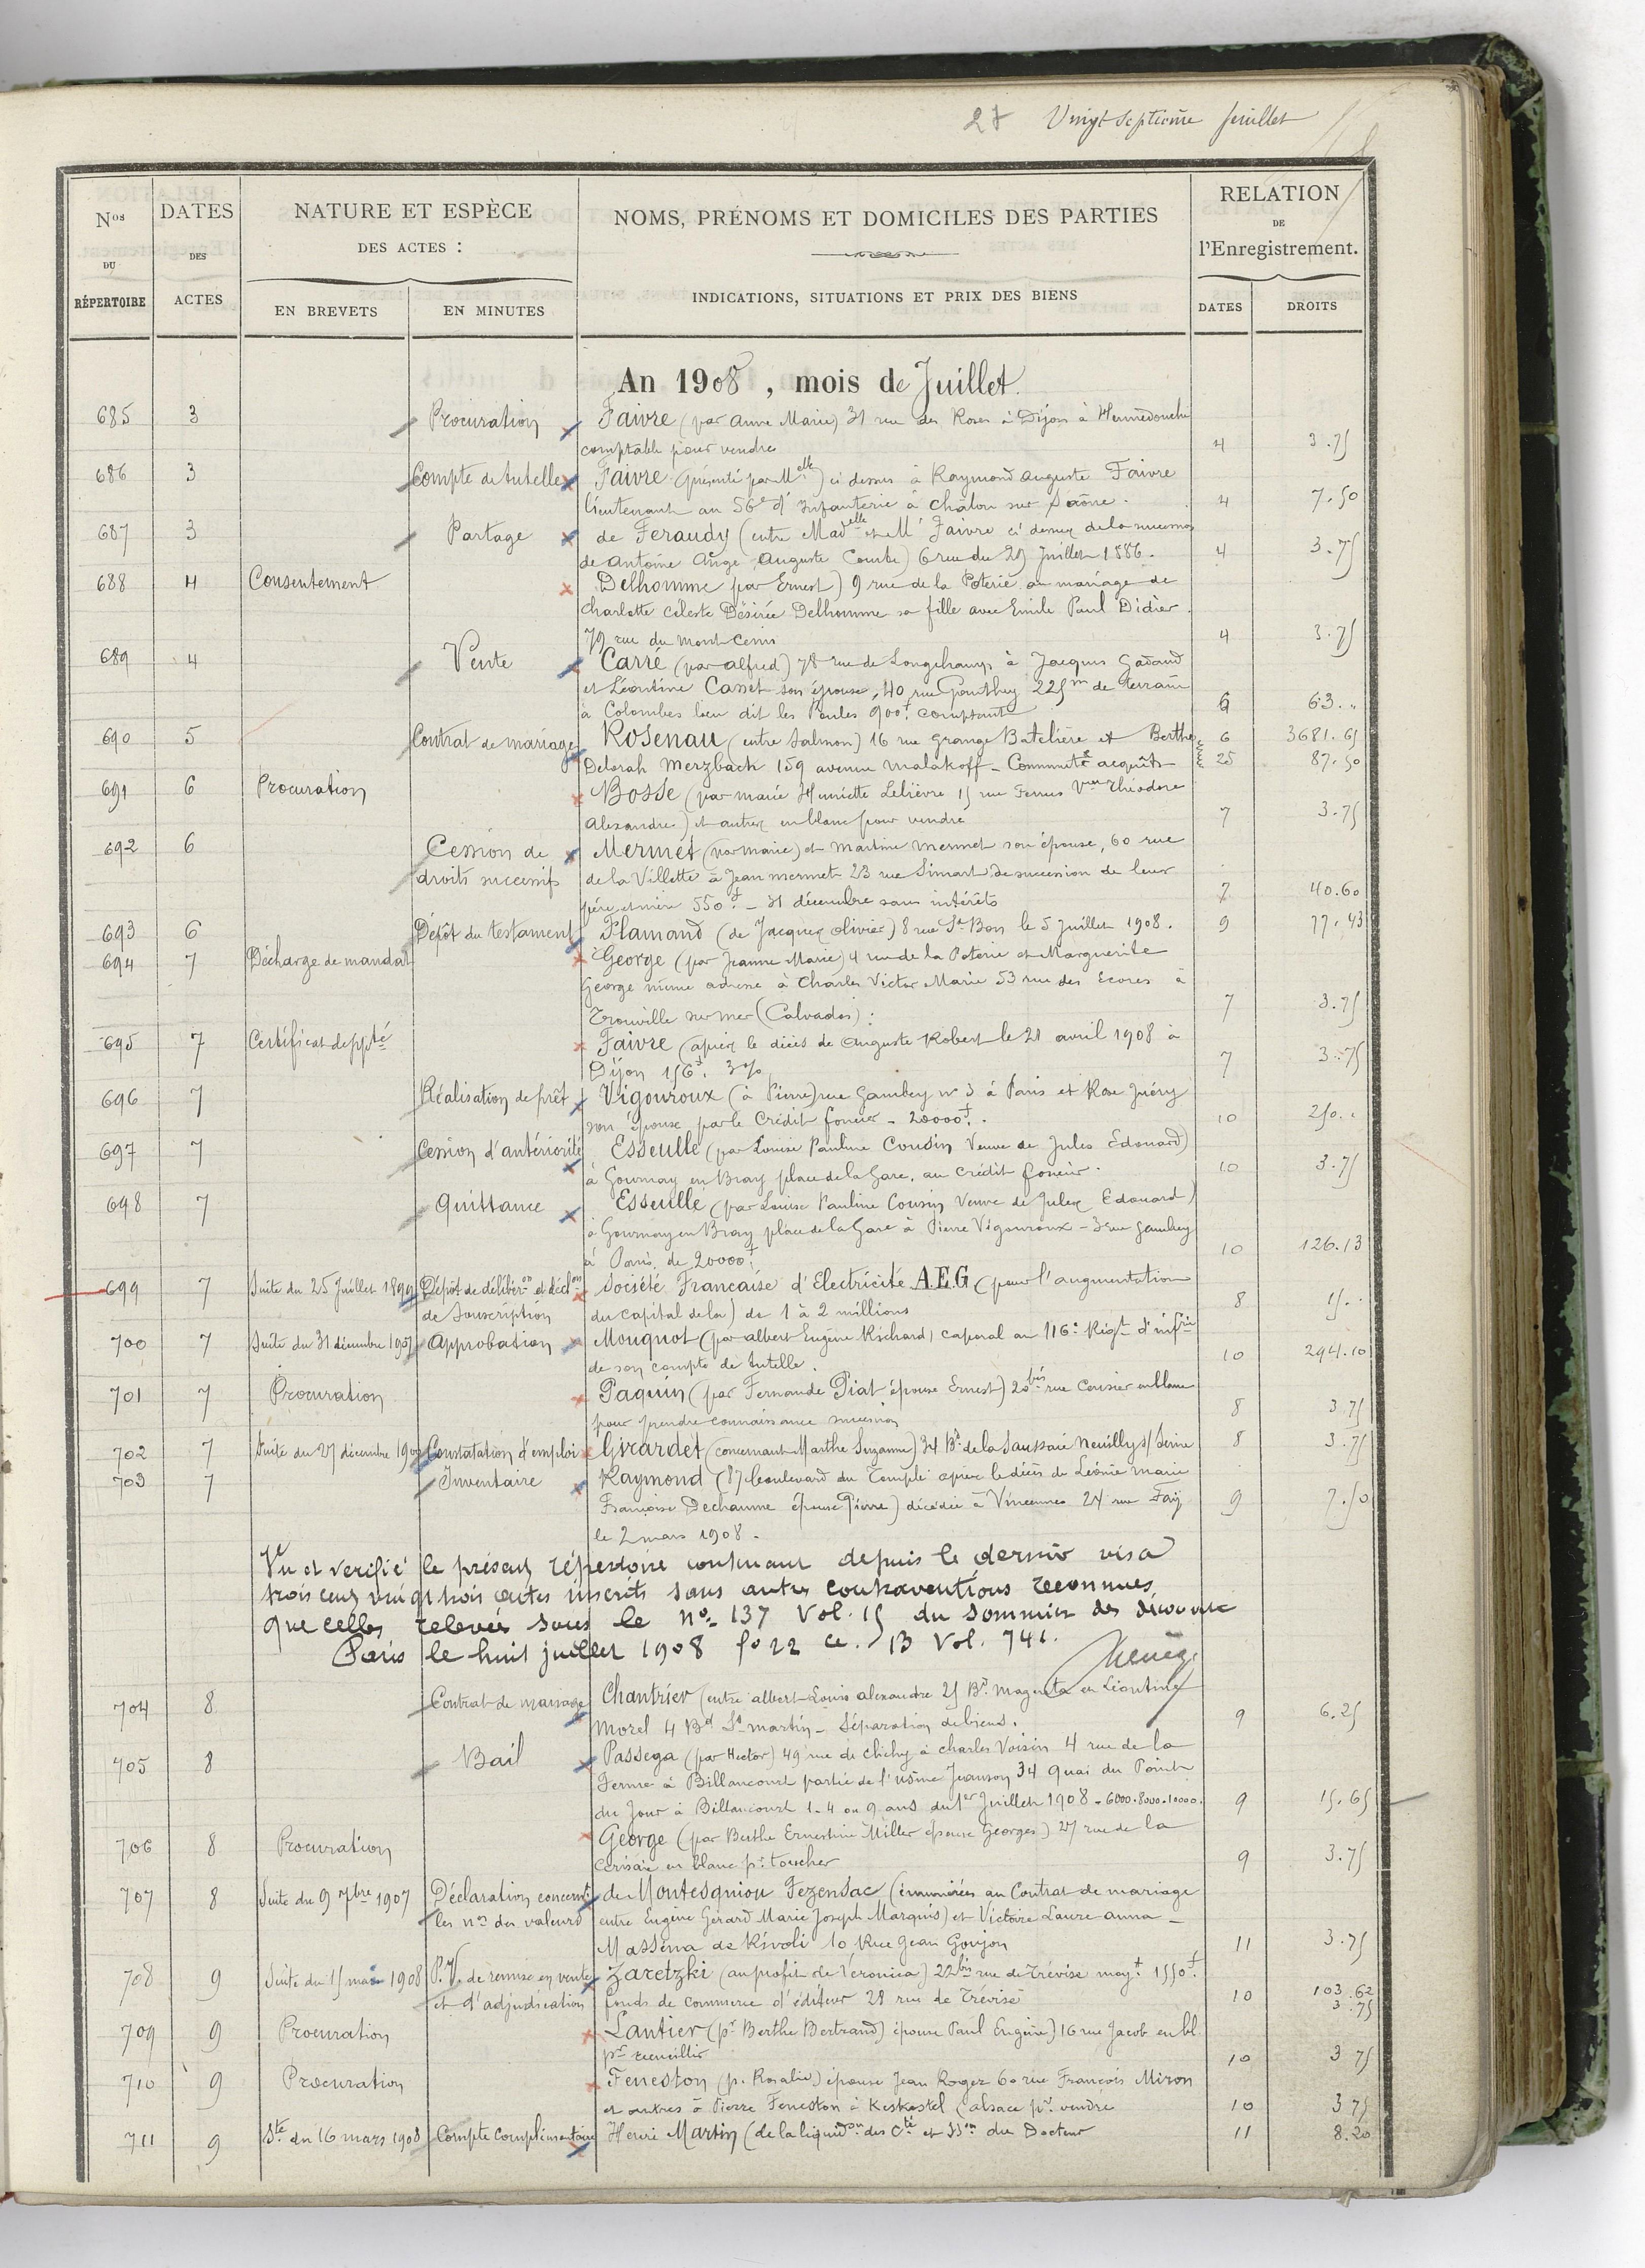 27 Vingt septième feuillet
Nos DU RÉPERTOIRE
DATES DES ACTES
NATURE ET ESPÈCE
DES ACTES :
EN BREVETS
EN MINUTES
NOMS, PRÉNOMS ET DOMICILES DES PARTIES
INDICATIONS, SITUATIONS ET PRIX DES BIENS
RELATION
DE
l'Enregistrement.
DATES
DROITS
An 1908, mois de Juillet.
685 3 Procuration Faivre (par Anne Marie) 31 rue des Roses à Dijon à
comptable pour vendre 4 3.75
686 3 Compte de tutelle Faivre (présenté par Melle) ci dessus à Raymond Auguste Faivre
lieutenant au 56e d'Infanterie à Châlon sur Saône. 4 7.50
687 3 Partage de Feraudy (entre Madelle et Mr Faivre ci dessus de la succession
de Antoine Ange Auguste Comte) 6 rue du 29 Juillet 1886. 4 3.75
688 4 Consentement Delhomme (par Ernest) 9 rue de la Poterie au mariage de
Charlotte Celeste Désirée Delhomme sa fille avec Emile Paul Didier.
79 rue du Mont Cenis 4 3.75
689 4 Vente Carré (par Alfred) 78 rue de Longchamp à Jacques Gadaud
et Léontine Casset son épouse, 40 rue Gauthey 225m de terrain
à Colombes lieu dit les Poules 900f. comptant 6 63. "
690 5 Contrat de mariage Rosenau (entre Salmon) 16 rue Grange Batelière et Berthe 6 3681.65
Deborah Merzbach 159 avenue Malakoff - Communté acquêts 25 87.50
691 6 Procuration Bosse (par Marie Henriette Lelièvre 15 rue Ferrus Vve Théodore
Alexandre) et autres en blanc pour vendre 7 3.75
692 6 Cession de Mermet (par Marie) et Martine Mermet son épouse, 60 rue
droits successifs de la Villette à Jean Mermet 23 rue Simart de succession de leur
père et mère 550f. - 31 décembre sans intérêts 7 40.60
693 6 Dépôt du testament Flamand (de Jacques Olivier) 8 rue St Bon le 5 Juillet 1908. 9 77.43
694 7 Décharge de mandat George (par Jeanne Marie) 4 rue de la Poterie et Marguerite
George même adresse à Charles Victor Marie 53 rue des Ecores à
Trouville sur mer (Calvados) : 7 3.75
695 7 Certificat de ppté Faivre (après le décès de Auguste Robert le 21 avril 1908 à
Dijon 156f. 3% 7 3.75
696 7 Réalisation de prêt Vigouroux (à Pierre) rue Gambey no 3 à Paris et Rose
son épouse par le Crédit foncier - 20000f. 10 250. "
697 7 Cession d'antériorité Esseulle (par Louise Pauline Cousin Veuve de Jules Edouard)
à Gournay en Bray place de la Gare, au Crédit foncier. 10 3.75
698 7 Quittance Esseulle (par Louise Pauline Cousin Veuve de Jules Edouard)
à Gournay en Bray place de la Gare à Pierre Vigouroux - 3 rue Gambey
à Paris de 20000f. 10 126.13
699 7 Suite du 25 Juillet 1899 Dépôt de délibéron et déclon Société Française d'Electricité A.E.G (pour l'augmentation
de Souscription du capital de la) de 1 à 2 millions 8 15. "
700 7 Suite du 31 décembre 1907 Approbation Mouquot (par Albert Eugène Richard) caporal au 116e Régt d'infrie
de son compte de tutelle. 10 294.10
701 7 Procuration Paquin (par Fernande Piat épouse Ernest) 20bis rue en blanc
pour prendre connaissance succession 8 3.75
702 7 Suite du 27 décembre Constatation d'emploi Girardet (concernant Marthe Suzanne) 34 Bd de la Saussaie Neuilly s/ Seine 8 3.75
703 7 Inventaire Raymond (87 boulevard du Temple après le décès de Léonie Marie
Françoise Dechaume épouse Pierre) décédée à Vincennes 24 rue Faÿ 9 7.50
le 2 mars 1908.
Vu et vérifié le présent répertoire contenant depuis le dernier visa
trois cent vingt trois actes inscrits sans autres contraventions reconnues
que celles relevées sous le no 137 Vol. 15 du sommier des
Paris le huit juillet 1908 fo 22 ce. 13 Vol. 741.
704 8 Contrat de mariage Chantrier (entre Albert Louis Alexandre 25 Bd Magenta et Léontine
Morel 4 Bd St Martin - Séparation de biens. 9 6.25
705 8 Bail Passega (par Hector) 49 rue de Clichy à Charles Voisin 4 rue de la
Ferme à Billancourt partie de l'usine 34 quai du Point
du Jour à Billancourt 1-4 ou 9 ans du 1er Juillet 1908 - 6000.8000.10000. 9 15.65
706 8 Procuration George (par Berthe Ernestine Miller épouse Georges) 27 rue de la
Cerisaie en blanc pr toucher 9 3.75
707 8 Suite du 9 7bre 1907 Déclaration concernt de Montesquiou Fezensac (énumérées au Contrat de mariage
les nos des valeurs entre Eugène Gérard Marie Joseph Marquis) et Victoire Laure Anna
Masséna de Rivoli 10 Rue Jean Goujon 11 3.75
708 9 Suite du 15 mai 1908 P.V. de remise en vente Zaretzki (au profit de Véronica) 22bis rue de Trévise moyt 1550f.
et d'adjudication fonds de commerce d'éditeur 28 rue de Trévise 10 103.62
3.75
709 9 Procuration Lantier (pr Berthe Bertrand) épouse Paul Eugène) 16 rue Jacob en bl.
pr recueillir 10 3 75
710 9 Procuration Feneston (p. Rosalie) épouse Jean Roger 60 rue François Miron
et autres à Pierre Feneston à Keskastel (Alsace pr. vendre 10 3 75
711 9 Ste du 16 mars 1908 Compte complémentaire Henri Martin (de la liquidon des Cté et Sson du Docteur 11 8.20